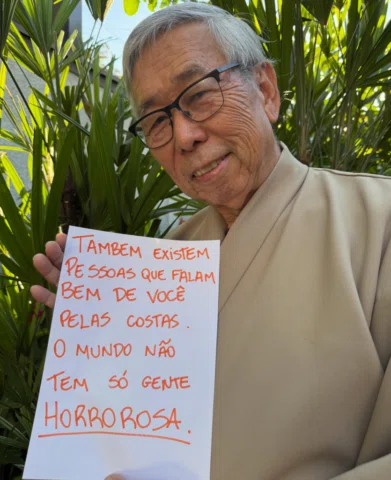 TAMBEM EXISTEM
PESSOAS QUE FALAM
BEM DE VOCÊ
PELAS COSTAS.
O MUNDO NÃO
TEM SÓ GENTE
HORROROSA.